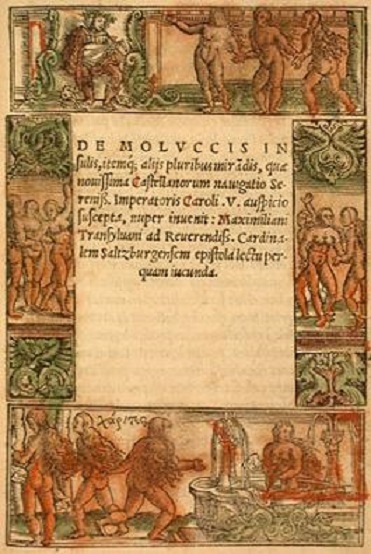 DE MOLVCCIS IN
sulis, itemq; alijs pluribus mirãdis, quæ
nouissima Castellanorum nauigatio Se
reniss. Imperatoris Caroli .V. auspicio
suscepta, nuper inuenit: Maximiliani
Transyluani ad Reuerendiss. Cardina
lem Saltzburgensem epistola lectu per
quam iucunda.